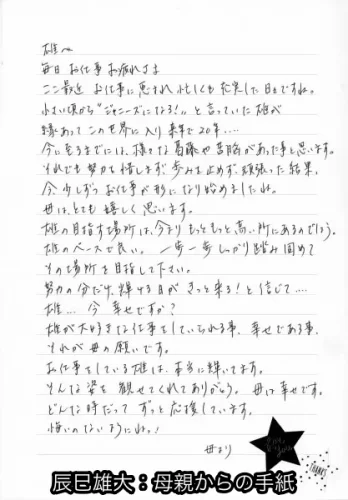 雄へ
毎日お仕事お疲れさま
ここ最近 お仕事に恵まれ 忙しくも充実した日々ですね。
小さい頃から"ジャニーズになる!!"と言っていた雄が
縁あってこの世界に入り来年で20年....
今に至るまでには、様々な葛藤や苦悩があった事と思います。
それでも努力を惜しまず歩みを止めず、頑張った結果、
今、少しずつお仕事が形になり始めましたね。
母は、とても嬉しく思います。
雄の目指す場所は、今よりもっともっと高い所にあるのでしょう。
雄のペースで良い。一歩一歩しっかり踏み固めて
その場所を目指して下さい。
努力の分だけ、輝ける日がきっと来る!と信じて....
雄... 今 幸せですか?
雄が大好きな仕事をしていられる事、幸せである事、
それが母の願いです。
お仕事をしている雄は、本当に輝いてます。
そんな姿を観せてくれてありがとう。母は幸せです。
どんな時だって ずっと応援しています。
悔いのないようにねっ!
母より
THANKS
辰巳雄大:母親からの手紙